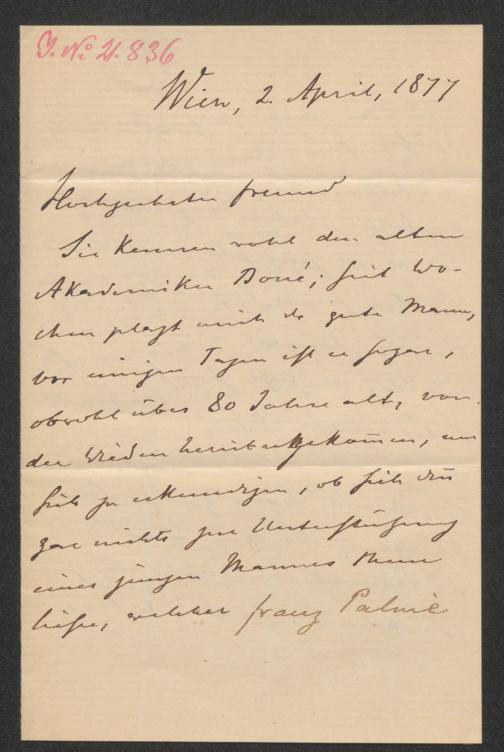 J. N: 21.836
Wien, 2. April, 1877
Hochgeehrter Freund
Sie kennen wohl den alten
Akademiker Boué; seit Wo-
chen plagt mich der gute Mann,
vor einigen Tagen ist er sogar,
obwohl über 80 Jahre alt, von
der Wieden herübergekommen, um
sich zu erkundigen, ob sich den
gar nichts zur Unterstützung
eines jungen Mannes thun
ließe, welcher Franz